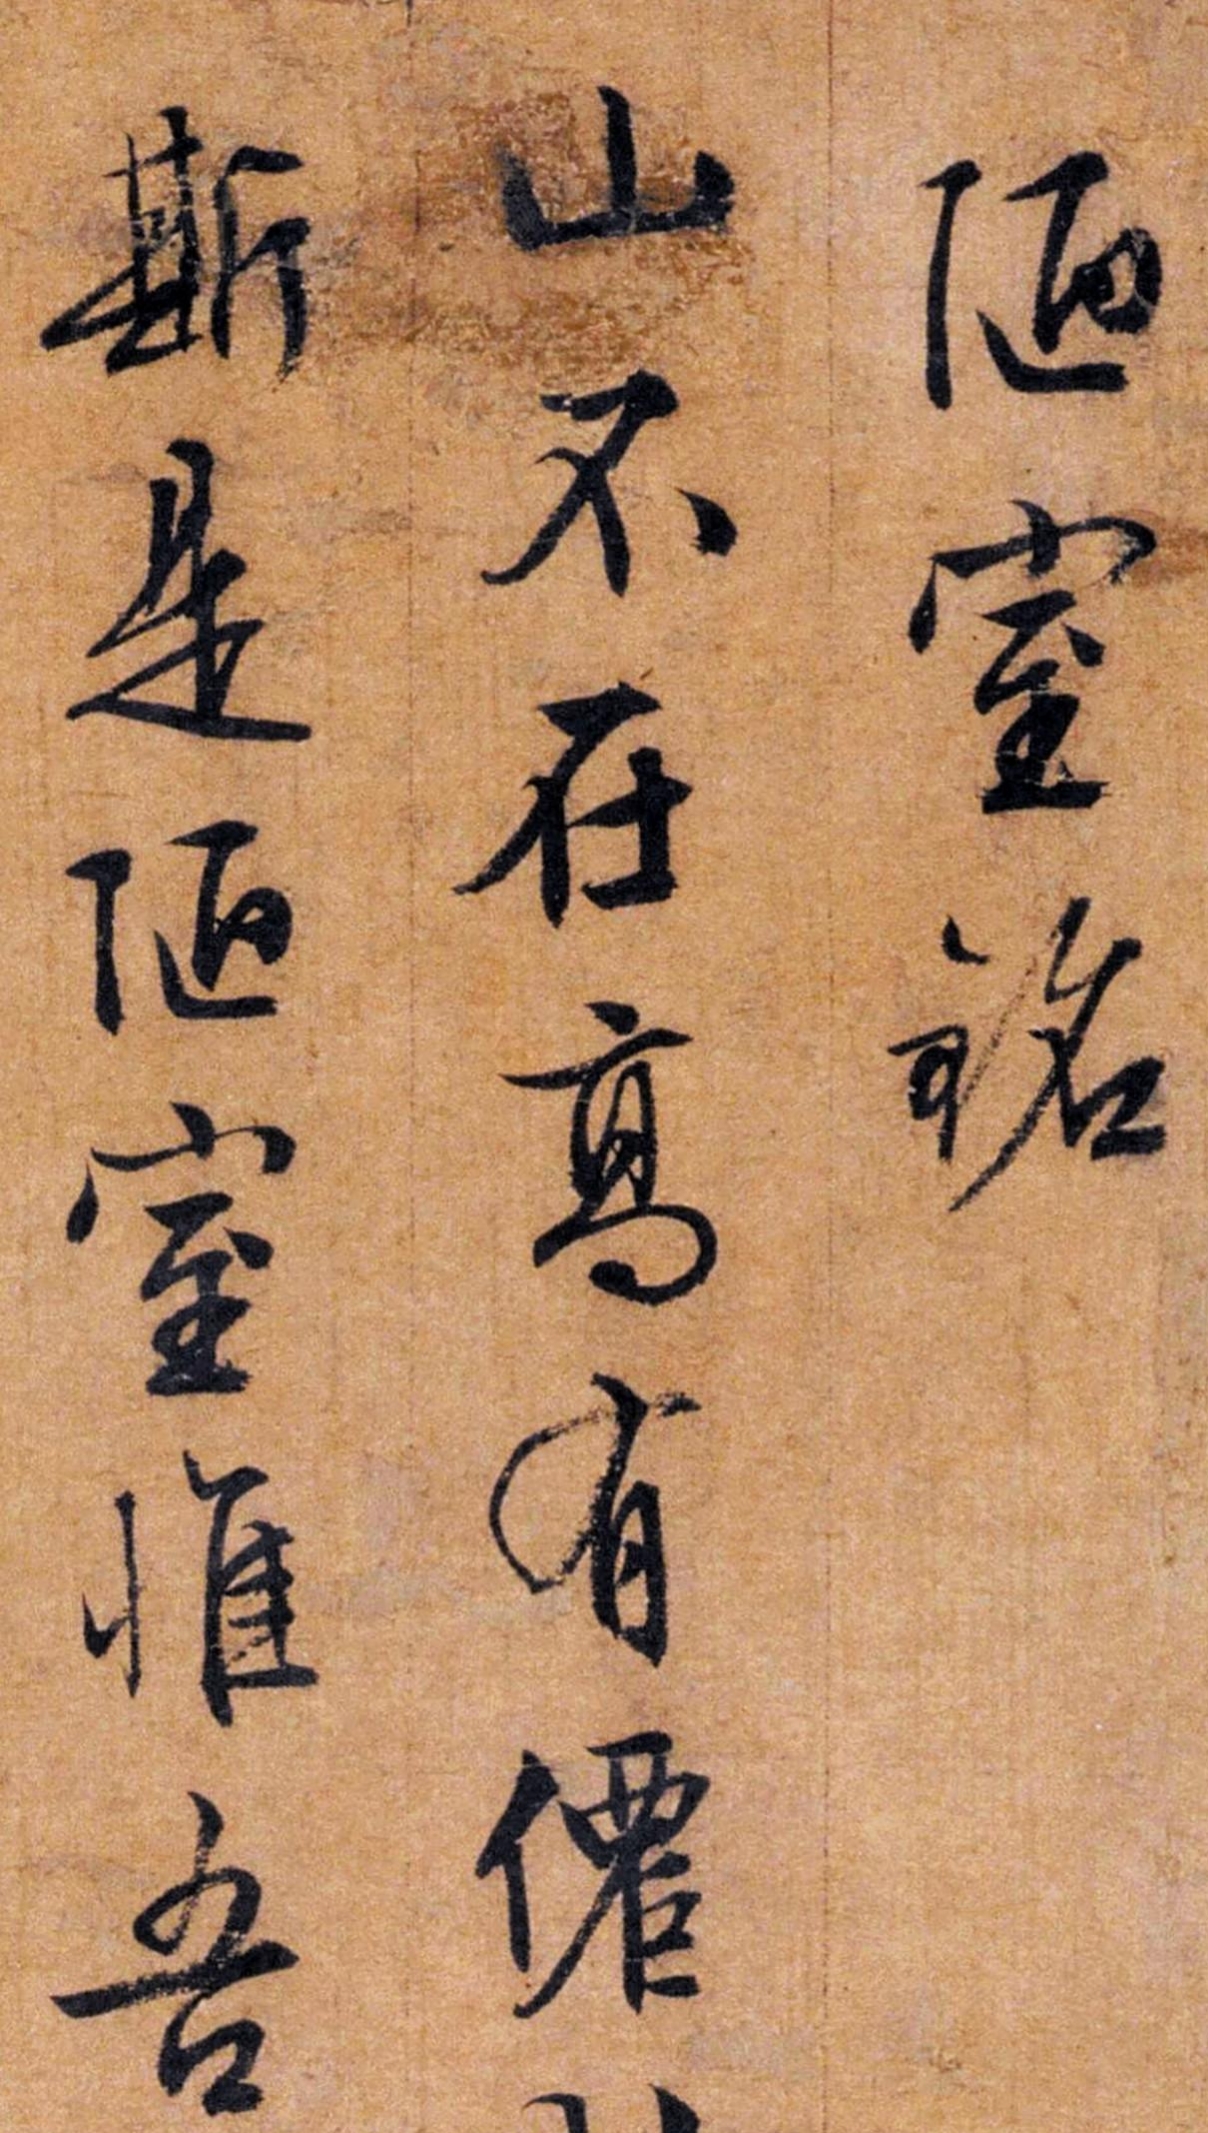 陋室銘
山不在高有僊
斯是陋室惟吾